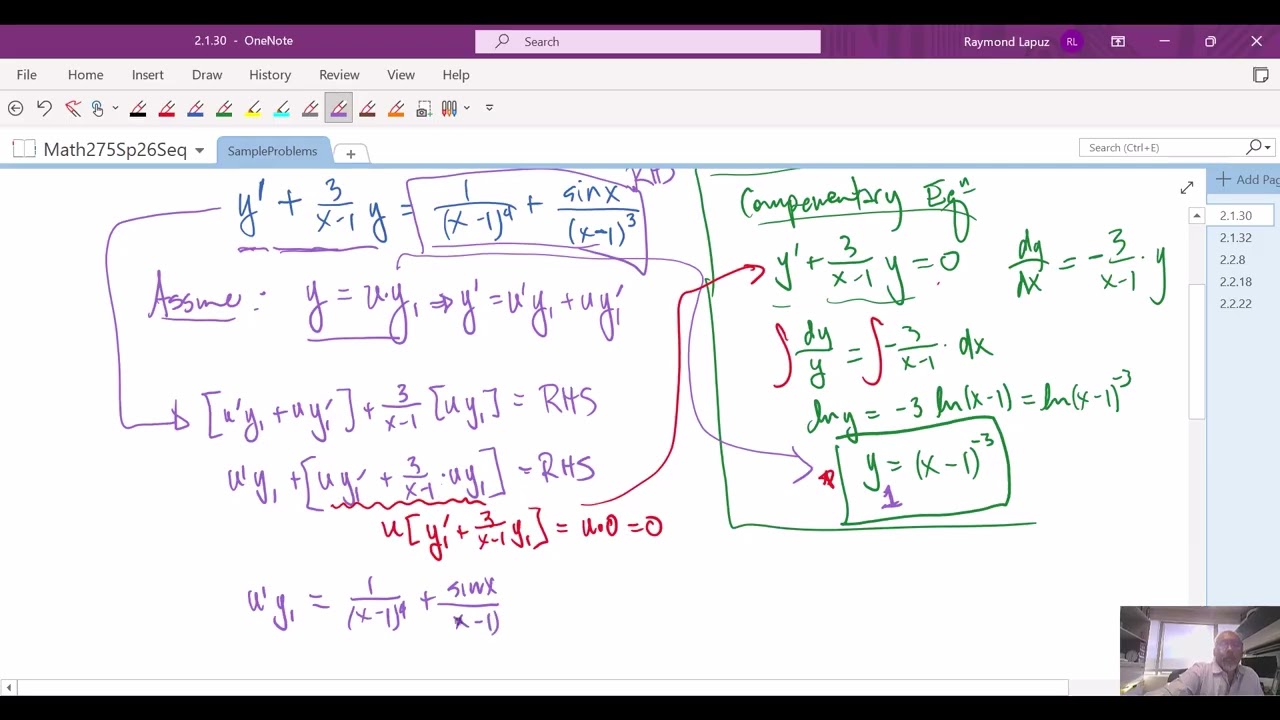 2.1.30 - OneNote
Search
Raymond Lapuz
RL
File Home Insert Draw History Review View Help
Math275Sp26Seq
SampleProblems
Search (Ctrl+E)
Add Pag
2.1.30
2.1.32
2.2.8
2.2.18
2.2.22
y' + 3/(x-1) y = 1/(x-1)^4 + sinx/(x-1)^3
RHS
Assume: y = u·y₁ ⇒ y' = u'y₁ + uy₁'
[u'y₁ + uy₁'] + 3/(x-1) [uy₁] = RHS
u'y₁ + [uy₁' + 3/(x-1) · uy₁] = RHS
u[y₁' + 3/(x-1) y₁] = u·0 = 0
u'y₁ = 1/(x-1)^4 + sinx/x-1)
Compementary Eqⁿ
y' + 3/(x-1) y = 0
dy/dx = -3/(x-1) · y
∫ dy/y = ∫ -3/(x-1) · dx
ln y = -3 ln(x-1) = ln(x-1)^-3
y₁ = (x-1)^-3